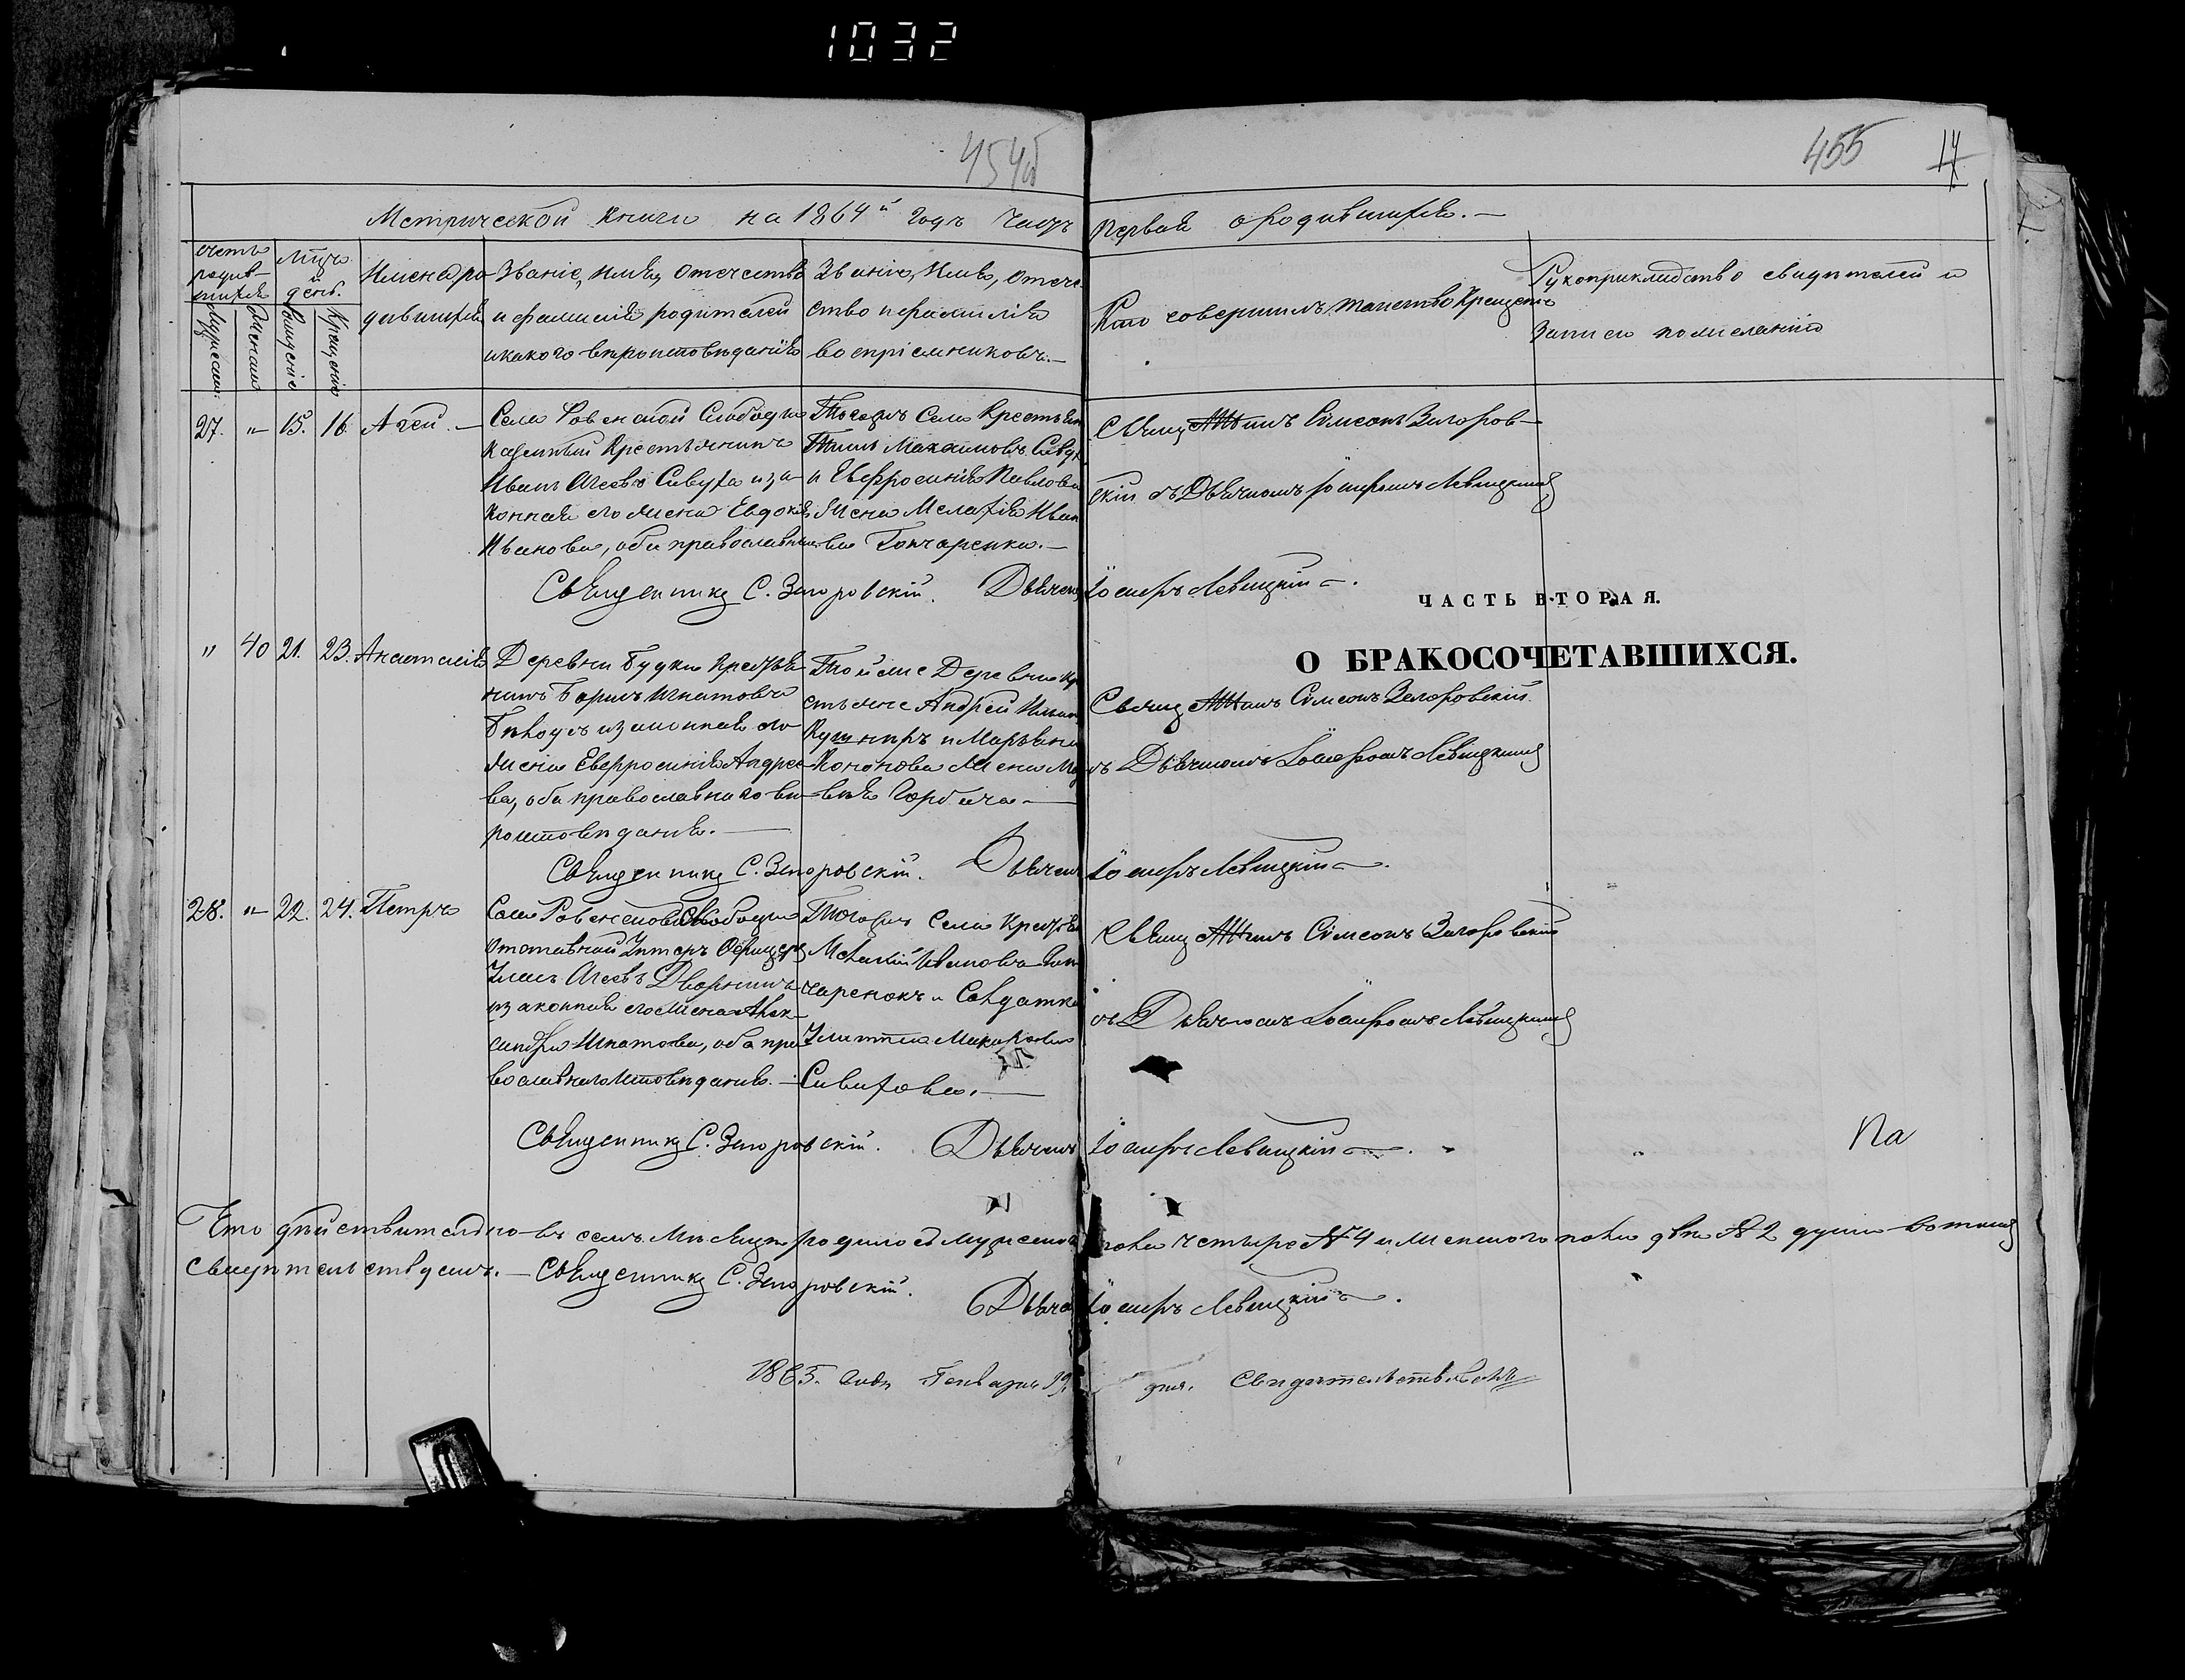 1032
454об
455 17
Метрической Книги на 1864й Годъ Часть Первая о родившихся.
Счетъ родив-шихся
Мѣсяцъ и день.
Мужеска
Женска
Рожденіе
Крещеніе
Имена ро-
дившихся
Званіе, имя, отечество
и фамилія родителей
и какого вѣроисповѣданія
Званіе, Имя, отече-
ство и фамилія
воспріемниковъ.
Кто совершилъ таинство Крещенія
Рукоприкладство свидѣтелей
записи по желанію
27. " 15. 16. Агей.
Села Ровенской Слободы
Казенный Крестьянинъ
Иванъ Агеевъ Сивуха и за-
конная его жена Евдокія
Иванова, оба православные
Тогожъ Села Крестьян
Тит Максимовъ
и Евфросинія Павлова
жена Мелахія Иван
ва Гончаренка.
Свящ Симеонъ Загоров-
скій съ Дьячкомъ Іосифомъ Левицкимъ
Священникъ С. Загоровскій. Дьячекъ Іосифъ Левицкій
ЧАСТЬ ВТОРАЯ.
О БРАКОСОЧЕТАВШИХСЯ.
" 40 21. 23. Анастасія
Деревни Будки Крестья-
нинъ Борисъ Игнатовъ
Бѣлоусъ и законная его
жена Евфросинія Андрее-
ва, оба православнаго вѣ-
роисповѣданія.
Той же Деревни Кре
стьяне Андрей
Кушниръ и Марьяна
Кононова жена
Горбача
Свящ Симеонъ Загоровскій
съ Дьячкомъ Іосифомъ Левицкимъ
Священникъ С. Загоровскій. Дьячекъ Іосифъ Левицкій
28. " 22. 24. Петръ
Села Ровенской Слободы
отставной Унтеръ Офицеръ
Агеевъ Дворникъ
и законная его жена Алек-
сандра Игнатова, оба пра-
вославнаго исповѣданія.
Тогожъ Села Крестьян
Иванова Гон-
чаренокъ и Солдатка
Макарова
Сивухова.
Свящ Симеонъ Загоровскій
съ Дьячкомъ Іосифомъ Левицкимъ
Священникъ С. Загоровскій. Дьячекъ Іосифъ Левицкій
На
Что дѣйствительно въ семъ Мѣсяцѣ родилось мужеска пола четыре № 4 и женскаго пола двѣ № 2 души въ томъ
свидѣтельствуемъ. Священникъ С. Загоровскій.
Дьячекъ Іосифъ Левицкій
1865. года Генваря 19 дня. Свидѣтельствовалъ